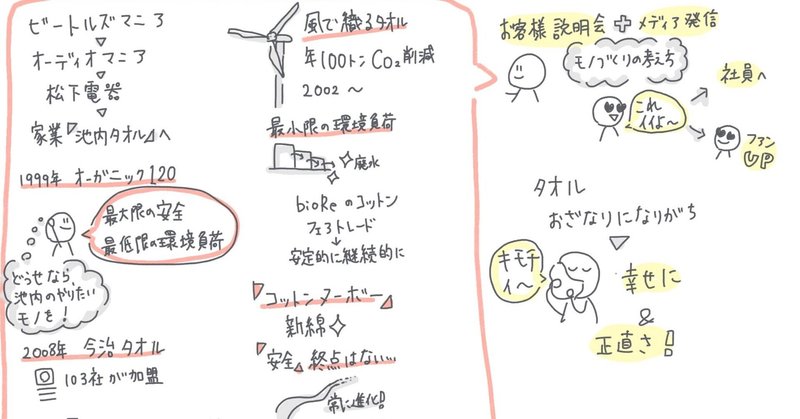 ビートルズマニア
オーディオマニア
松下電器
家業『池内タオル』へ
1999年 オーガニック120
最大限の安全
最低限の環境負荷
どうせなら、
池内のやりたい
モノを！
2008年 今治タオル
103社が加盟
風で織るタオル
年100トンCO2削減
2002～
最小限の環境負荷
廃水
bioReのコットン
フェアトレード
安定的に継続的に
『コットンヌーボー』
新綿
『安全』終点はない…
常に進化!
お客様説明会＋メディア発信
モノづくりの考え方
社員へ
これ
イイよ～
ファン
UP
タオル
おざなりになりがち
キモチ
イ～
幸せに
&
正直さ!